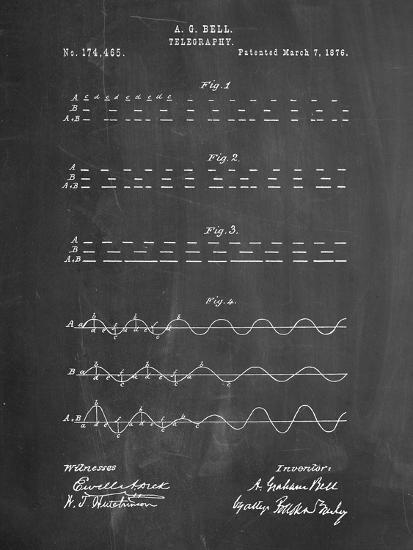 A. G. BELL.
TELEGRAPHY.
No. 174,465. Patented March 7, 1876.
Fig. 1
A c d c d c d c d c
B
A+B
Fig. 2.
A
B
A+B
Fig. 3.
A
B
A+B
Fig. 4.
A
B
A+B
Witnesses
Ewell A. Dick
W. J. Hutchinson
Inventor:
A. Graham Bell
by atty Pollok Bailey